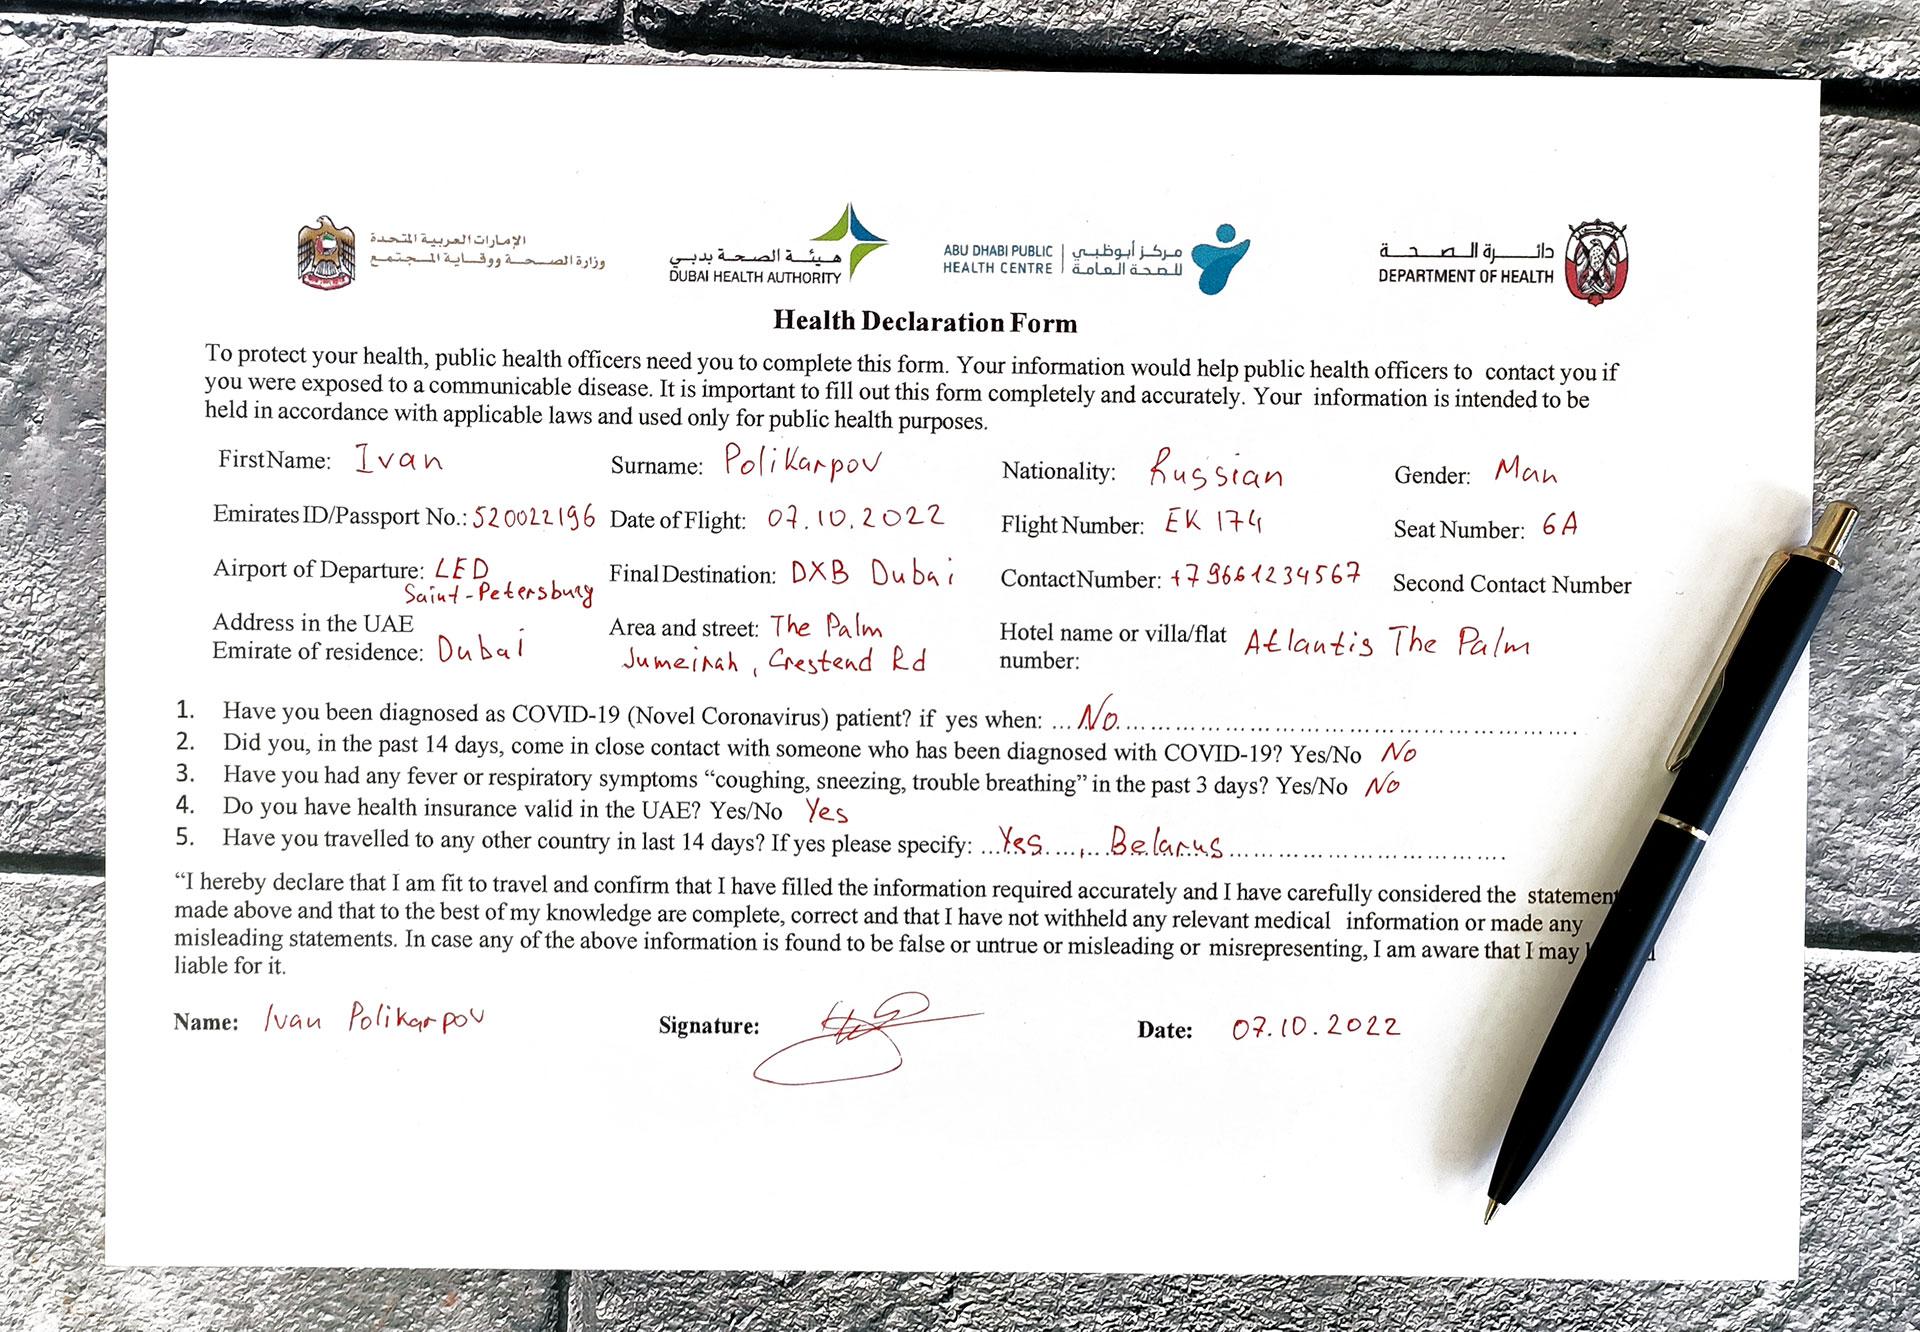 الإمارات العربية المتحدة
وزارة الصحة ووقاية المجتمع
هيئة الصحة بدبي
DUBAI HEALTH AUTHORITY
ABU DHABI PUBLIC
HEALTH CENTRE
مركز أبوظبي
للصحة العامة
دائرة الصحة
DEPARTMENT OF HEALTH
Health Declaration Form
To protect your health, public health officers need you to complete this form. Your information would help public health officers to contact you if
you were exposed to a communicable disease. It is important to fill out this form completely and accurately. Your information is intended to be
held in accordance with applicable laws and used only for public health purposes.
First Name: Ivan Surname: Polikarpov Nationality: Russian Gender: Man
Emirates ID/Passport No.: 520022196 Date of Flight: 07.10.2022 Flight Number: EK 174 Seat Number: 6A
Airport of Departure: LED Final Destination: DXB Dubai Contact Number: +79661234567 Second Contact Number
Saint-Petersburg
Address in the UAE Area and street: The Palm Hotel name or villa/flat Atlantis The Palm
Emirate of residence: Dubai Jumeirah, Crestend Rd number:
1. Have you been diagnosed as COVID-19 (Novel Coronavirus) patient? if yes when: ...No..............................
2. Did you, in the past 14 days, come in close contact with someone who has been diagnosed with COVID-19? Yes/No No
3. Have you had any fever or respiratory symptoms “coughing, sneezing, trouble breathing” in the past 3 days? Yes/No No
4. Do you have health insurance valid in the UAE? Yes/No Yes
5. Have you travelled to any other country in last 14 days? If yes please specify: ...Yes...,..Belarus..............................
“I hereby declare that I am fit to travel and confirm that I have filled the information required accurately and I have carefully considered the statement
made above and that to the best of my knowledge are complete, correct and that I have not withheld any relevant medical information or made any
misleading statements. In case any of the above information is found to be false or untrue or misleading or misrepresenting, I am aware that I may
liable for it.
Name: Ivan Polikarpov Signature: Date: 07.10.2022